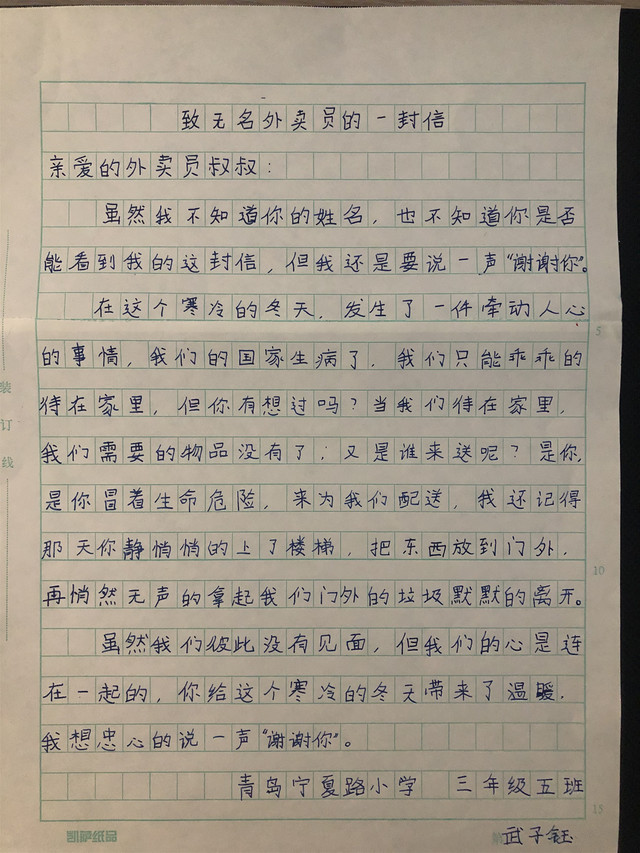 致无名外卖员的一封信
亲爱的外卖员叔叔：
虽然我不知道你的姓名，也不知道你是否
能看到我的这封信，但我还是要说一声“谢谢你”。
在这个寒冷的冬天，发生了一件牵动人心
的事情，我们的国家生病了，我们只能乖乖的
待在家里，但你有想过吗？当我们待在家里，
我们需要的物品没有了，又是谁来送呢？是你，
是你冒着生命危险，来为我们配送，我还记得
那天你静悄悄的上了楼梯，把东西放到门外，
再悄然无声的拿起我们门外的垃圾默默的离开。
虽然我们彼此没有见面，但我们的心是连
在一起的，你给这个寒冷的冬天带来了温暖，
我想忠心的说一声“谢谢你”。
青岛宁夏路小学 三年级五班
武子钰
5
10
15
装
订
线
凯萨纸品